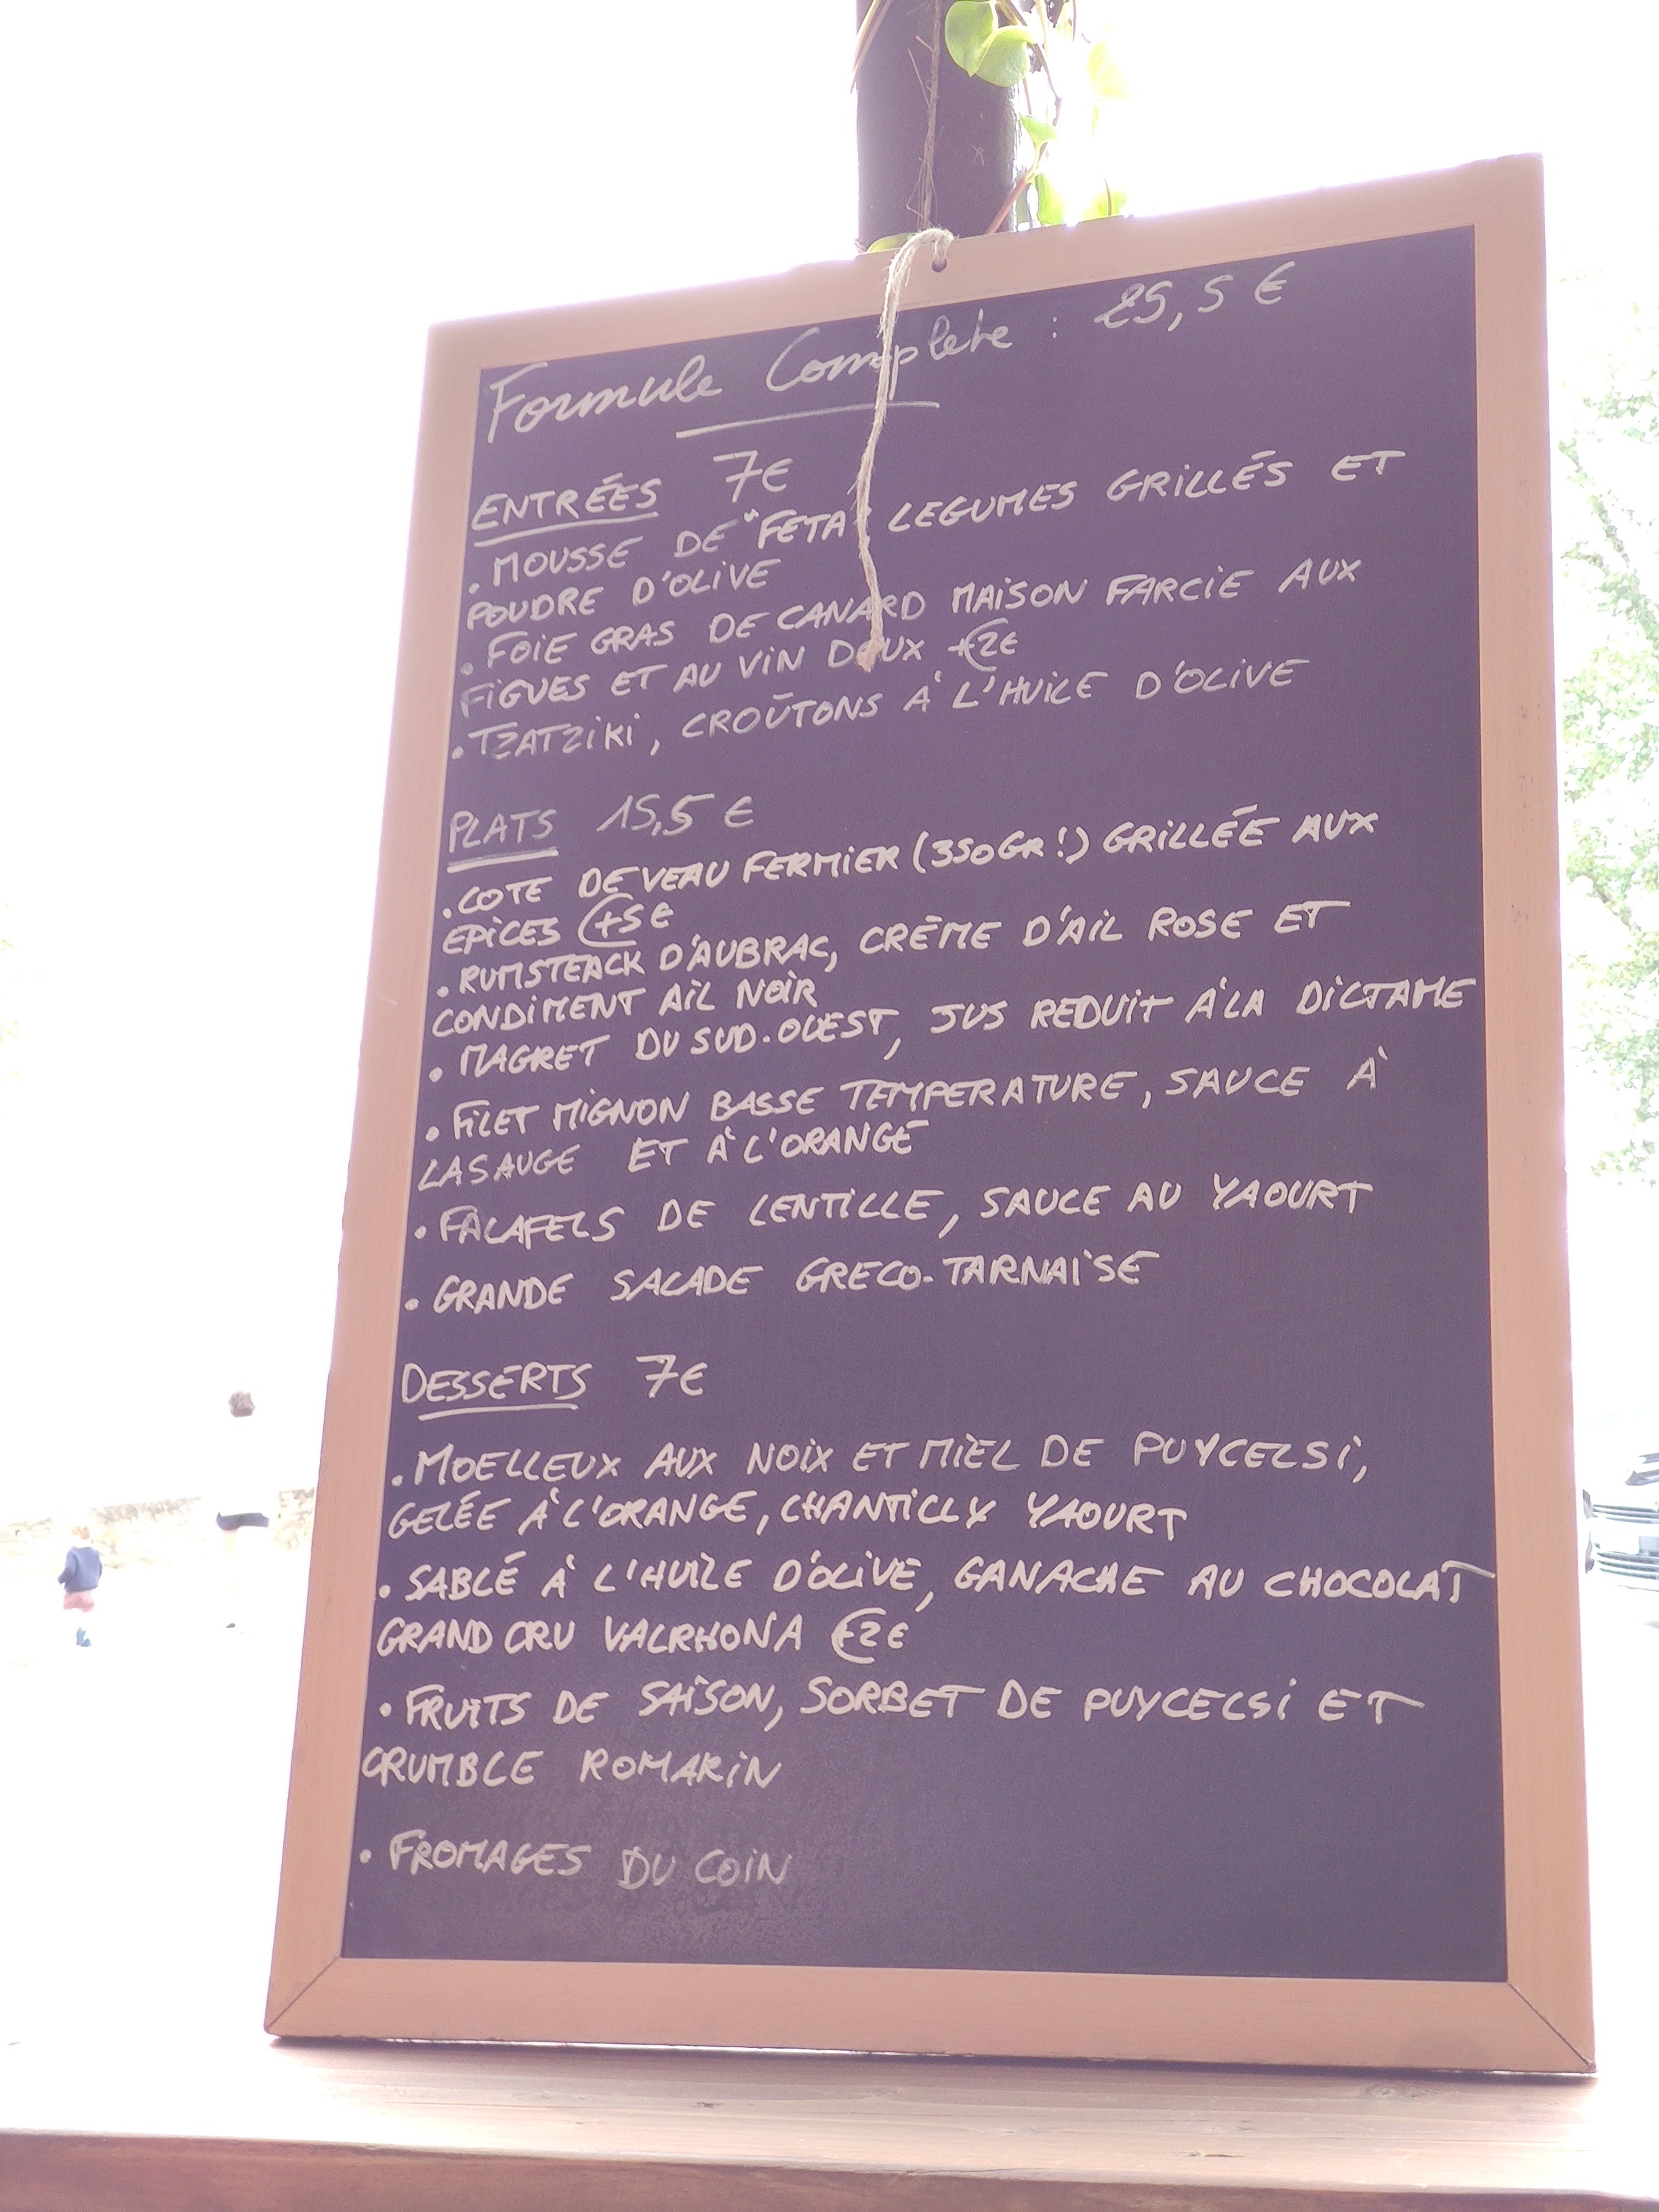 Formule Complete : 25,5 €
ENTRÉES 7€
. MOUSSE DE "FETA", LEGUMES GRILLÉS ET
POUDRE D'OLIVE
. FOIE GRAS DE CANARD MAISON FARCIE AUX
FIGUES ET AU VIN DOUX +2€
. TZATZIKI, CROÛTONS À L'HUILE D'OLIVE
PLATS 15,5 €
. COTE DE VEAU FERMIER (350GR!) GRILLÉE AUX
EPICES +5€
. RUMSTEACK D'AUBRAC, CRÈME D'AIL ROSE ET
CONDIMENT AIL NOIR
. MAGRET DU SUD-OUEST, JUS REDUIT À LA DICTAME
. FILET MIGNON BASSE TEMPERATURE, SAUCE À
LA SAUGE ET À L'ORANGE
. FALAFELS DE LENTILLE, SAUCE AU YAOURT
. GRANDE SALADE GRECO-TARNAISE
DESSERTS 7€
. MOELLEUX AUX NOIX ET MIEL DE PUYCELSI,
GELÉE À L'ORANGE, CHANTILLY YAOURT
. SABLÉ À L'HUILE D'OLIVE, GANACHE AU CHOCOLAT
GRAND CRU VALRHONA +2€
. FRUITS DE SAISON, SORBET DE PUYCELSI ET
CRUMBLE ROMARIN
. FROMAGES DU COIN